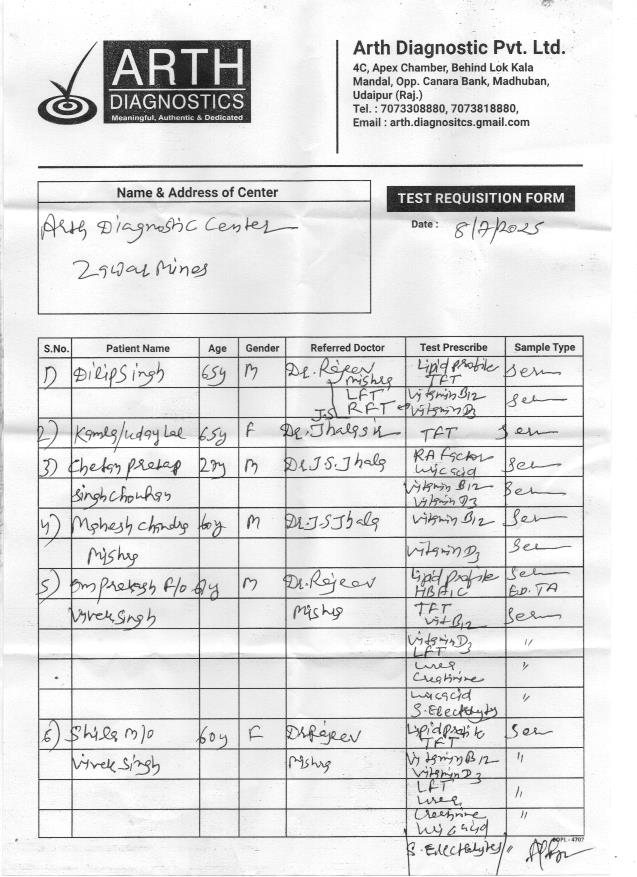 ARTH
DIAGNOSTICS
Meaningful, Authentic & Dedicated
Arth Diagnostic Pvt. Ltd.
4C, Apex Chamber, Behind Lok Kala
Mandal, Opp. Canara Bank, Madhuban,
Udaipur (Raj.)
Tel. : 7073308880, 7073818880,
Email : arth.diagnositcs.gmail.com
Name & Address of Center
Arth Diagnostic Center
Zawar Mines
TEST REQUISITION FORM
Date : 8/7/2025
S.No. Patient Name Age Gender Referred Doctor Test Prescribe Sample Type
1) Dilip Singh 65y M Dr. Rajeev Lipid profile Serum
Mishra TFT
LFT Vitamin B12 Serum
J.S RFT Vitamin D3
2) Kamla/Uday Lal 65y F Dr. Jhala sir TFT Serum
3) Chetan Pratap 27y M Dr. J.S. Jhala RA Factor Serum
Uric acid
Singh Chouhan Vitamin B12 Serum
Vitamin D3
4) Mahesh Chandra 60y M Dr. J S Jhala Vitamin B12 Serum
Mishra Vitamin D3 Serum
5) Om Prakash F/O M Dr. Rajeev Lipid profile Serum
HBA1C E.D.TA
Vivek Singh Mishra TFT Serum
Vit B12
Vitamin D3 "
LFT
Urea "
Creatinine
Uric acid "
S. Electrolytes
6) Shila M/O 60y F Dr Rajeev Lipid profile Serum
TFT
Vivek Singh Mishra Vitamin B12 "
Vitamin D3
LFT "
Urea
Creatinine "
Uric acid
S. Electrolytes "